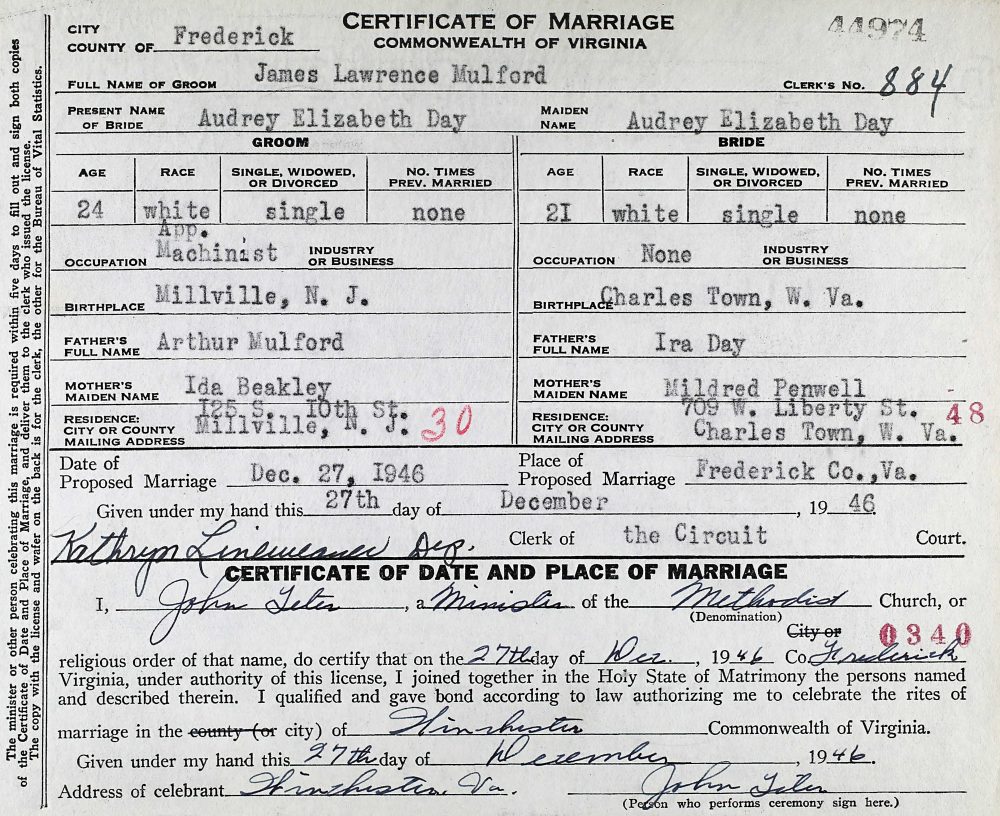 CERTIFICATE OF MARRIAGE
COMMONWEALTH OF VIRGINIA
44974
CITY
COUNTY OF Frederick
FULL NAME OF GROOM James Lawrence Mulford CLERK'S NO. 884
PRESENT NAME OF BRIDE Audrey Elizabeth Day MAIDEN NAME Audrey Elizabeth Day
GROOM BRIDE
AGE RACE SINGLE, WIDOWED, OR DIVORCED NO. TIMES PREV. MARRIED AGE RACE SINGLE, WIDOWED, OR DIVORCED NO. TIMES PREV. MARRIED
24 white single none 2I white single none
OCCUPATION App. Machinist INDUSTRY OR BUSINESS OCCUPATION None INDUSTRY OR BUSINESS
BIRTHPLACE Millville, N. J. BIRTHPLACE Charles Town, W. Va.
FATHER'S FULL NAME Arthur Mulford FATHER'S FULL NAME Ira Day
MOTHER'S MAIDEN NAME Ida Beakley MOTHER'S MAIDEN NAME Mildred Penwell
RESIDENCE: CITY OR COUNTY MAILING ADDRESS I25 S. I0th St. Millville, N. J. 30 RESIDENCE: CITY OR COUNTY MAILING ADDRESS 709 W. Liberty St. Charles Town, W. Va. 48
Date of Proposed Marriage Dec. 27, I946 Place of Proposed Marriage Frederick Co.,Va.
Given under my hand this 27th day of December, 19 46
Kathryn Lineweaver Dep. Clerk of the Circuit Court.
CERTIFICATE OF DATE AND PLACE OF MARRIAGE
I, John Teter, a Minister of the Methodist Church, or
(Denomination)
City or 0340
religious order of that name, do certify that on the 27th day of Dec., 1946 Co. Frederick
Virginia, under authority of this license, I joined together in the Holy State of Matrimony the persons named
and described therein. I qualified and gave bond according to law authorizing me to celebrate the rites of
marriage in the county (or city) of Winchester Commonwealth of Virginia.
Given under my hand this 27th day of December, 1946.
Address of celebrant Winchester, Va. John Teter
(Person who performs ceremony sign here.)
The minister or other person celebrating this marriage is required within five days to fill out and sign both copies
of the Certificate of Date and Place of Marriage, and deliver them to the clerk who issued the license.
The copy with the license and wafer on the back is for the clerk, the other for the Bureau of Vital Statistics.